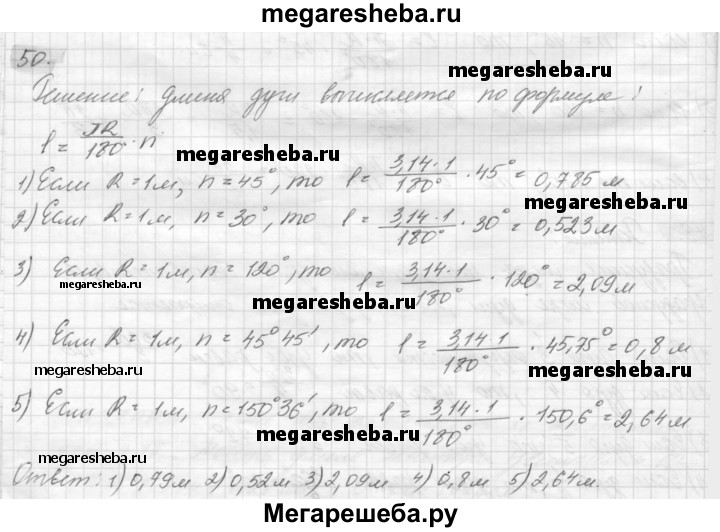 megaresheba.ru
50.
megaresheba.ru
Решение: длина дуги вычисляется по формуле:
l = πR/180° · n
megaresheba.ru
1) Если R = 1м, n = 45°, то l = 3,14·1/180° · 45° = 0,785 м
megaresheba.ru
2) Если R = 1м, n = 30°, то l = 3,14·1/180° · 30° = 0,523 м
3) Если R = 1м, n = 120°, то l = 3,14·1/180° · 120° = 2,09 м
megaresheba.ru
megaresheba.ru
4) Если R = 1м, n = 45° 45′, то l = 3,14·1/180° · 45,75° = 0,8 м
megaresheba.ru
megaresheba.ru
5) Если R = 1м, n = 150° 36′, то l = 3,14·1/180° · 150,6° = 2,64 м
megaresheba.ru
megaresheba.ru
Ответ: 1) 0,79м 2) 0,52м 3) 2,09м 4) 0,8м 5) 2,64м.
Мегарешеба.ру